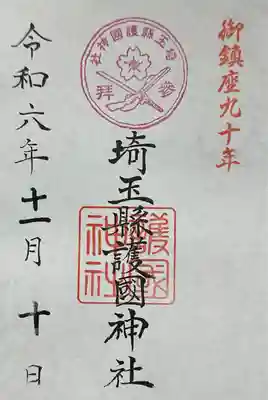 御鎮座九十年
埼玉縣護國神社
参拜
埼玉縣護國神社
護國
神社
令和六年十一月十日